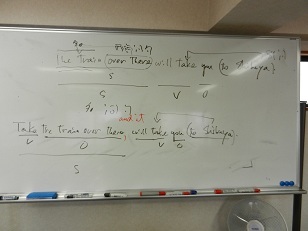 The train (over there) will take you (to Shibuya)
S V O
and it
Take the train over there, will take you (to Shibuya).
V O V O
S